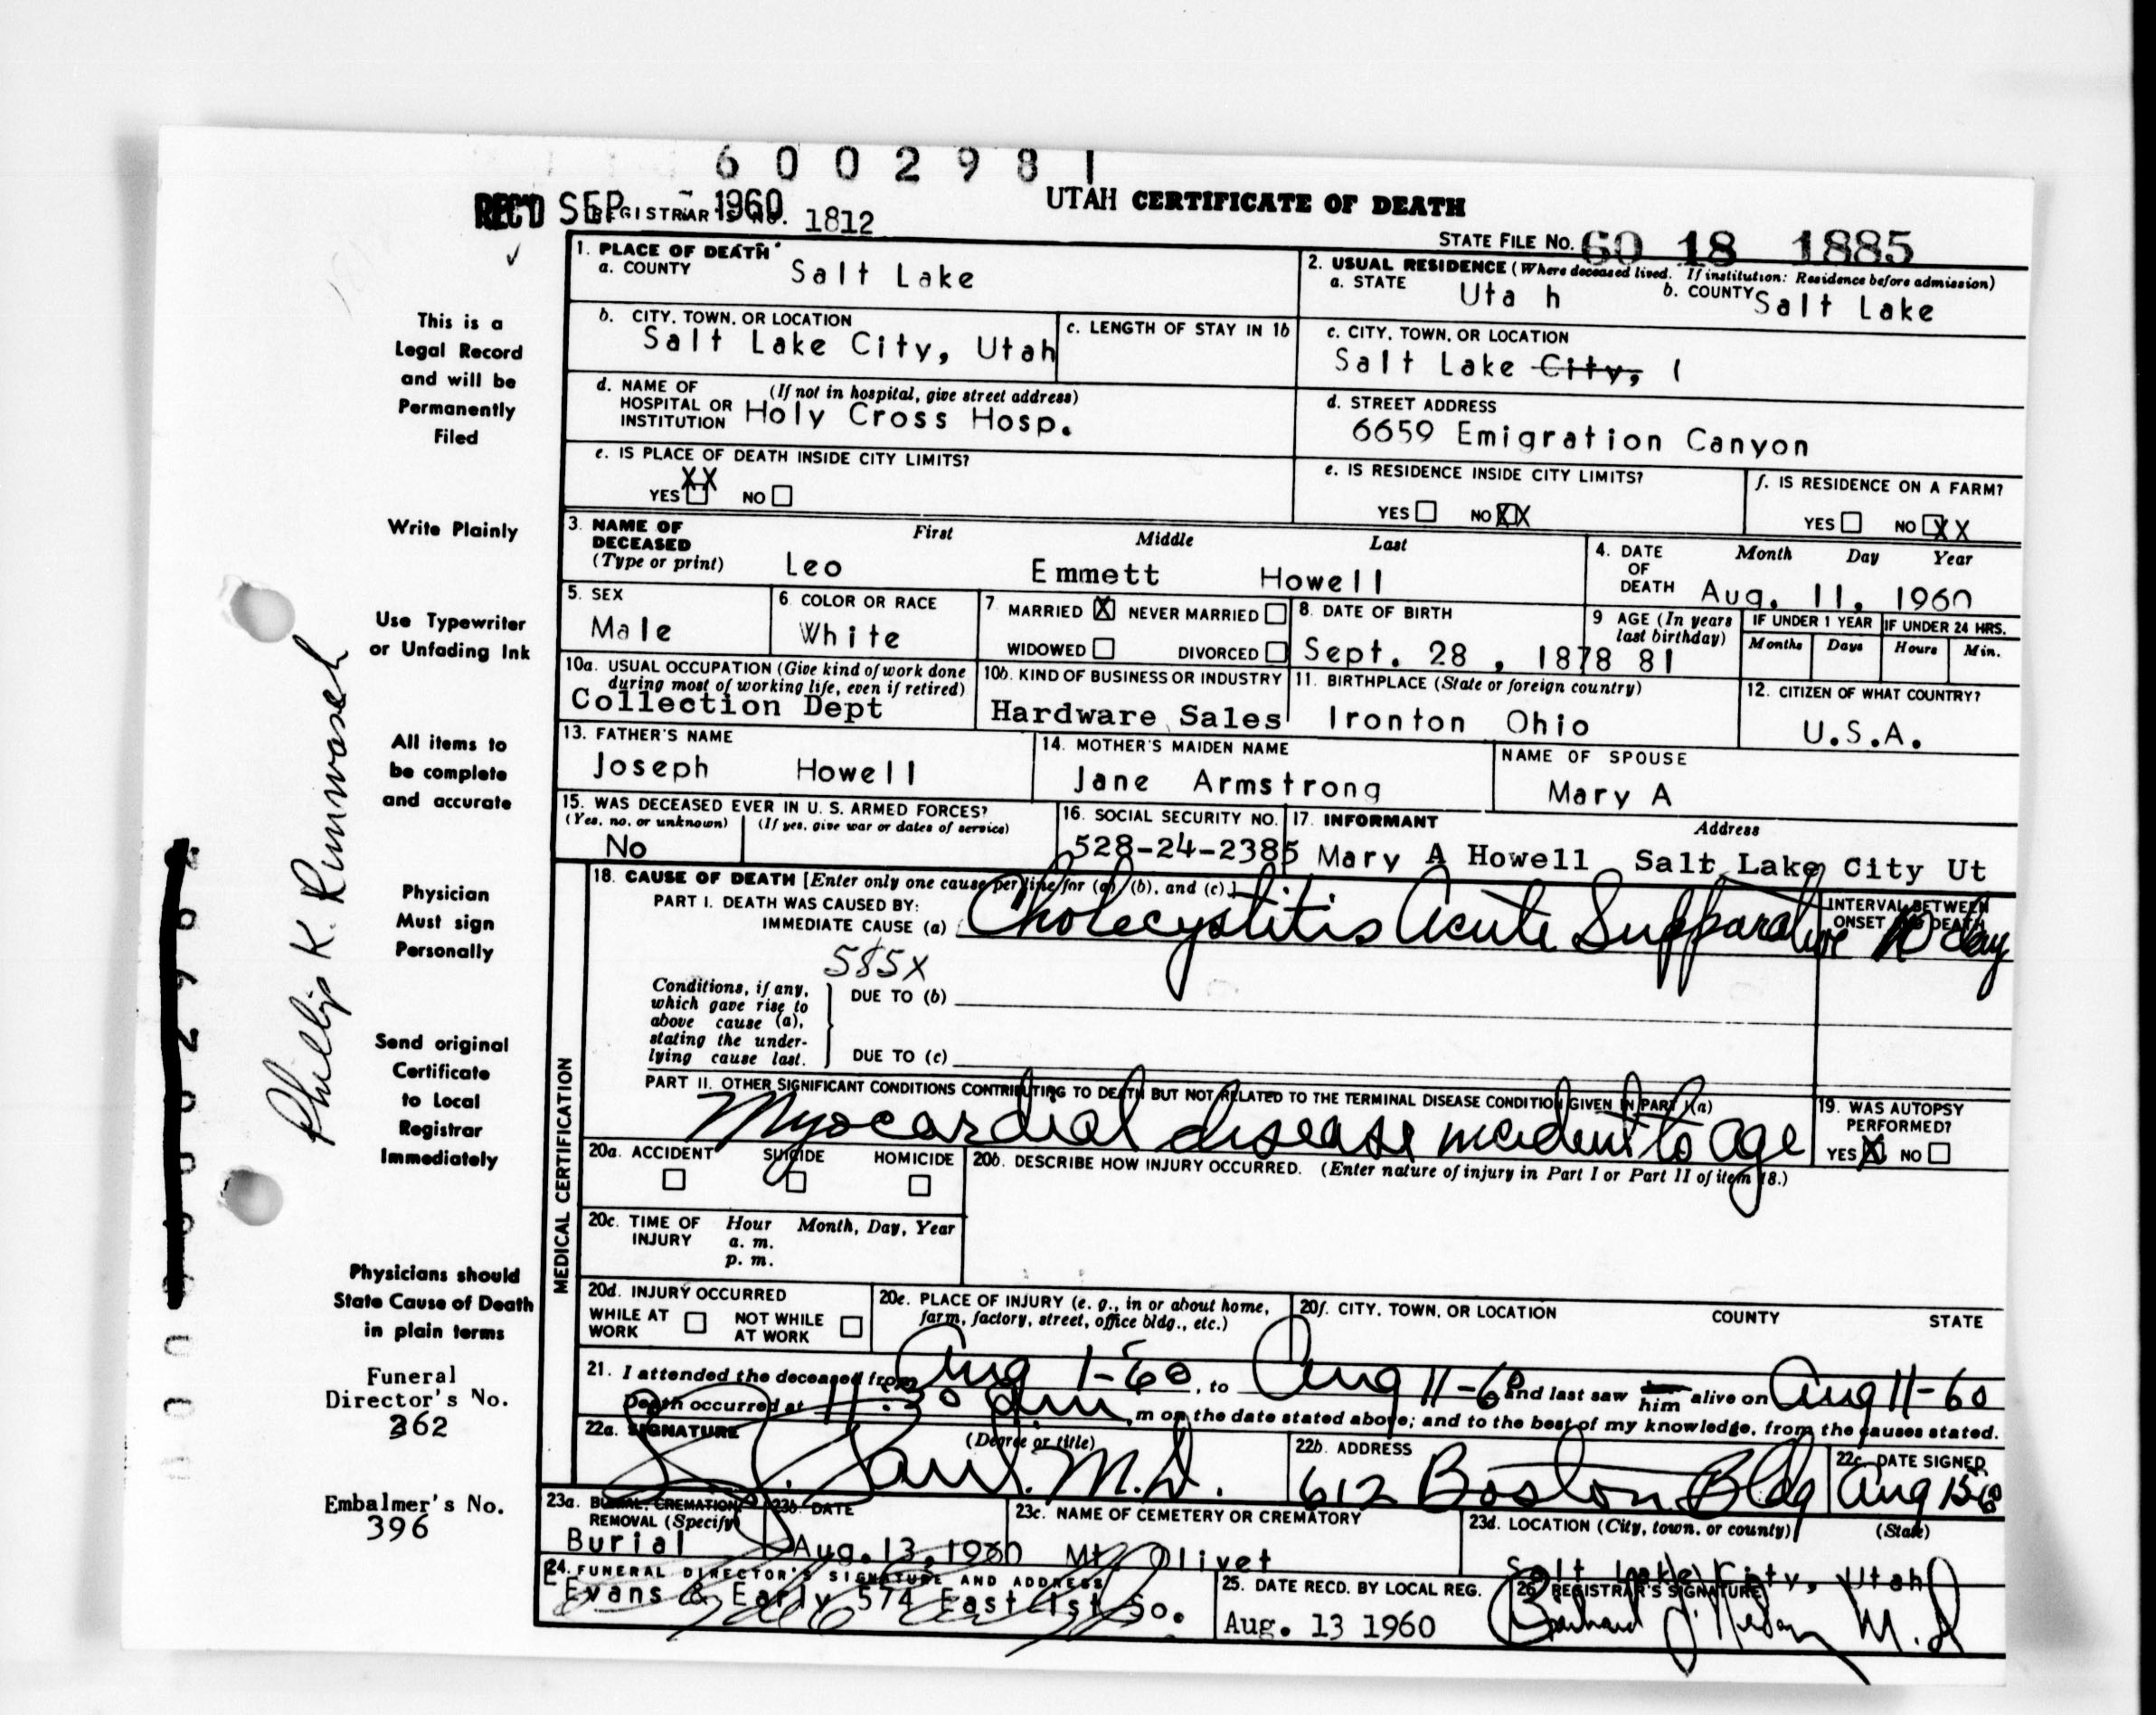 6002981
REC'D SEP - 1960 REGISTRAR'S NO. 1812
UTAH CERTIFICATE OF DEATH
STATE FILE NO. 60 18 1885
1. PLACE OF DEATH
a. COUNTY Salt Lake
2. USUAL RESIDENCE (Where deceased lived. If institution: Residence before admission)
a. STATE Uta h b. COUNTY Salt Lake
b. CITY, TOWN, OR LOCATION
Salt Lake City, Utah
c. LENGTH OF STAY IN 1b
c. CITY, TOWN, OR LOCATION
Salt Lake City, 1
d. NAME OF HOSPITAL OR INSTITUTION (If not in hospital, give street address)
Holy Cross Hosp.
d. STREET ADDRESS
6659 Emigration Canyon
e. IS PLACE OF DEATH INSIDE CITY LIMITS?
YES XX NO
e. IS RESIDENCE INSIDE CITY LIMITS?
YES NO XX
f. IS RESIDENCE ON A FARM?
YES NO XX
3. NAME OF DECEASED (Type or print)
First Middle Last
Leo Emmett Howell
4. DATE OF DEATH Month Day Year
Aug. 11, 1960
5. SEX
Male
6. COLOR OR RACE
White
7. MARRIED X NEVER MARRIED
WIDOWED DIVORCED
8. DATE OF BIRTH
Sept. 28 , 1878
9. AGE (In years last birthday)
81
IF UNDER 1 YEAR
Months Days
IF UNDER 24 HRS.
Hours Min.
10a. USUAL OCCUPATION (Give kind of work done during most of working life, even if retired)
Collection Dept
10b. KIND OF BUSINESS OR INDUSTRY
Hardware Sales
11. BIRTHPLACE (State or foreign country)
Ironton Ohio
12. CITIZEN OF WHAT COUNTRY?
U.S.A.
13. FATHER'S NAME
Joseph Howell
14. MOTHER'S MAIDEN NAME
Jane Armstrong
NAME OF SPOUSE
Mary A
15. WAS DECEASED EVER IN U. S. ARMED FORCES?
(Yes, no, or unknown) (If yes, give war or dates of service)
No
16. SOCIAL SECURITY NO.
528-24-2385
17. INFORMANT Address
Mary A Howell Salt Lake City Ut
MEDICAL CERTIFICATION
18. CAUSE OF DEATH [Enter only one cause per line for (a), (b), and (c).]
PART I. DEATH WAS CAUSED BY:
IMMEDIATE CAUSE (a) Cholecystitis Acute Suppurative
INTERVAL BETWEEN ONSET AND DEATH
10 day
585X
Conditions, if any, which gave rise to above cause (a), stating the underlying cause last.
DUE TO (b)
DUE TO (c)
PART II. OTHER SIGNIFICANT CONDITIONS CONTRIBUTING TO DEATH BUT NOT RELATED TO THE TERMINAL DISEASE CONDITION GIVEN IN PART I(a)
Myocardial disease incident to age
19. WAS AUTOPSY PERFORMED?
YES X NO
20a. ACCIDENT SUICIDE HOMICIDE
20b. DESCRIBE HOW INJURY OCCURRED. (Enter nature of injury in Part I or Part II of item 18.)
20c. TIME OF INJURY Hour Month, Day, Year
a. m.
p. m.
20d. INJURY OCCURRED
WHILE AT WORK NOT WHILE AT WORK
20e. PLACE OF INJURY (e. g., in or about home, farm, factory, street, office bldg., etc.)
20f. CITY, TOWN, OR LOCATION COUNTY STATE
21. I attended the deceased from Aug 1-60, to Aug 11-60 and last saw him alive on Aug 11-60
Death occurred at 11:30 m on the date stated above; and to the best of my knowledge, from the causes stated.
22a. SIGNATURE (Degree or title)
M.D.
22b. ADDRESS
612 Boston Bldg
22c. DATE SIGNED
Aug 15-60
23a. BURIAL, CREMATION, REMOVAL (Specify)
Burial
23b. DATE
Aug. 13, 1960
23c. NAME OF CEMETERY OR CREMATORY
Mt Olivet
23d. LOCATION (City, town, or county) (State)
Salt Lake City, Utah
24. FUNERAL DIRECTOR'S SIGNATURE AND ADDRESS
Evans & Early 574 East 1st So.
25. DATE RECD. BY LOCAL REG.
Aug. 13 1960
26. REGISTRAR'S SIGNATURE
M.D
This is a
Legal Record
and will be
Permanently
Filed
Write Plainly
Use Typewriter
or Unfading Ink
All items to
be complete
and accurate
Physician
Must sign
Personally
Send original
Certificate
to Local
Registrar
Immediately
Physicians should
State Cause of Death
in plain terms
Funeral
Director's No.
262
Embalmer's No.
396
Phillip K.